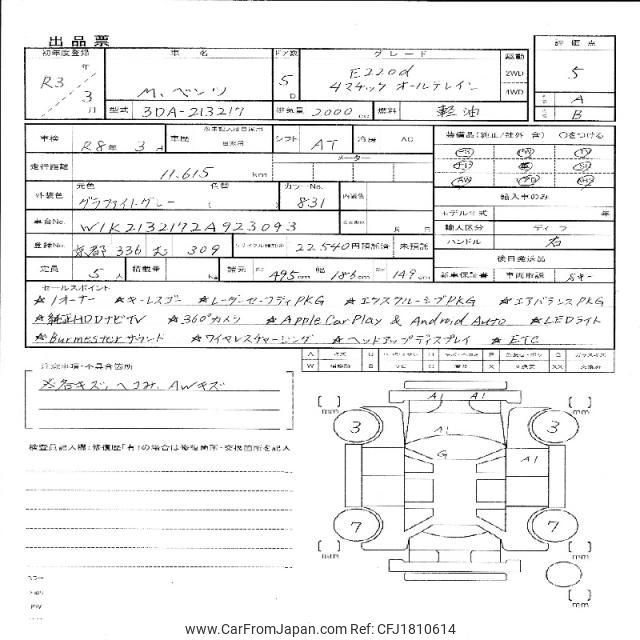 出品票
初年度登録 車名 ドア数 グレード 駆動 評価点
R3年 3月 M.ベンツ 5D E220d 2WD 5
4マチック オールテレイン 4WD A
型式 3DA-213217 排気量 2000cc 燃料 軽油 B
車検 R8年 3月 車歴 自家用 シフト AT 冷房 AC 装備品(純正/社外 含) ○をつける
走行距離 11.615 km メーター
AW
外装色 元色 グラファイトグレー カラーNo. 831 内装色 輸入車のみ
モデル年式 年
車台No. W1K2132172A923093 月 輸入区分 ディーラ
登録No. 京都 336 む 309 リサイクル預託金 22.540円預託済 未預託 ハンドル 右
定員 5人 積載量 Kg 諸元 長 495cm 幅 186cm 高 149cm 後日発送品
新車保証書 車両取説
セールスポイント
☆1オーナー ☆キーレスゴー ☆レーダーセーフティPKG ☆エクスクルーシブPKG ☆エアバランスPKG
☆純正HDDナビTV ☆360°カメラ ☆Apple CarPlay & Android Auto ☆LEDライト
☆Burmesterサウンド ☆ワイヤレスチャージング ☆ヘッドアップディスプレイ ☆ETC
注意事項・不具合箇所
※各キズ、ヘコみ、AWキズ
検査員記入欄:修復歴「有」の場合は修復箇所・交換箇所を記入
A1 A1
mm mm
3 A1 3
G A1
7 7
mm mm
mm
www.CarFromJapan.com - Ref: CFJ1810614